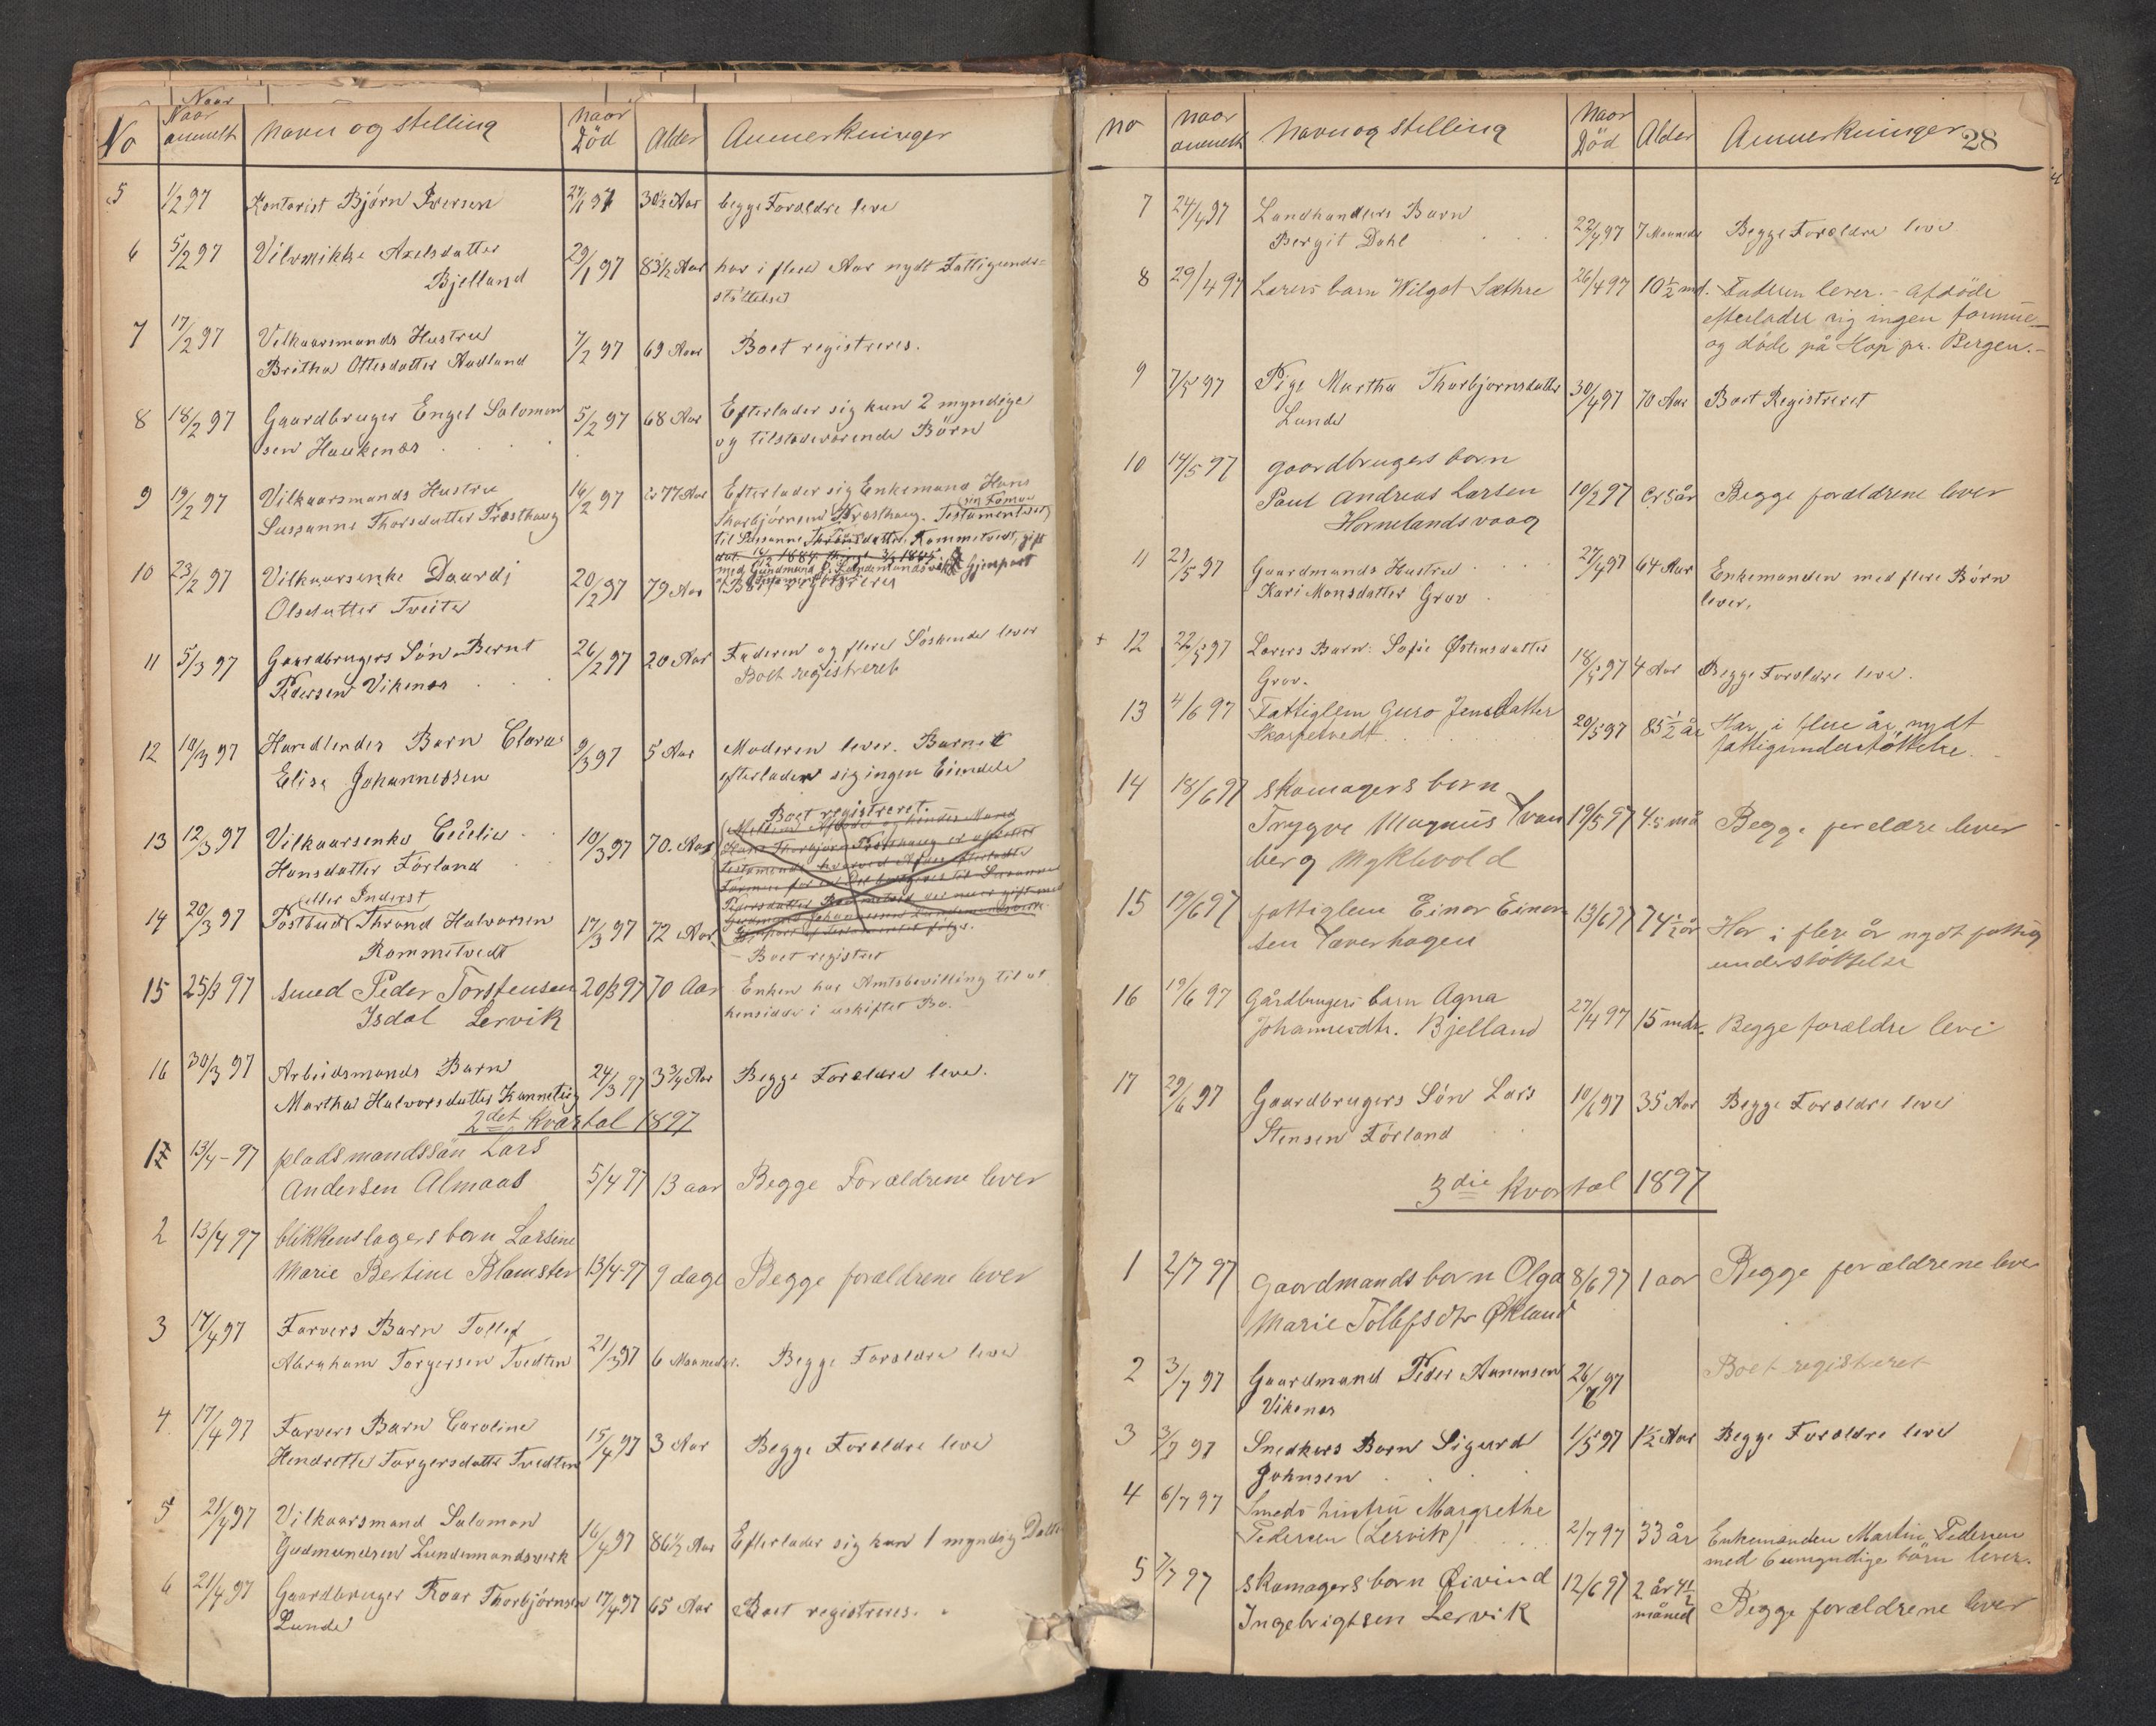 Naar
No Naar anmeldt Navn og stilling Naar Död Alder Anmerkninger
5 1/2 97 Kontorist Bjørn Iversen 27/1 97 30½ Aar begge Foreldre leve
6 5/2 97 Axelsdatter 29/1 97 83½ Aar har i flere Aar nydt Fattigunds=
Bjelland støttelse
7 17/2 97 Vilkaarsmands Hustru
Britha Ottesdatter Aadland 7/2 97 69 Aar Boet registreres.
8 18/2 97 Gaardbruger Engel Salomon 5/2 97 68 Aar Efterlader sig kun 2 myndige
sen Haukenæs og tilstedeværende Börn
9 19/2 97 Vilkaarsmands Hustru 16/2 97 77 Aar Efterlader sig Enkemand Hans
Susanne Thorsdatter Præsthaug Thorbjørnsen Præsthaug. Testamenteret
sin Formue
til Susanne Rommetvedt, gift
10 23/2 97 Vilkaarsenke Daardi 20/2 97 79 Aar med Gundmund Gjenpart
Olsdatter Tveite Boet registreres
11 5/3 97 Gaardbrugers Sön Bernt 26/2 97 20 Aar Faderen og flere Söskende lever
Pedersen Vikenæs Boet registreret
12 10/3 97 Handlendes Barn Clara 9/3 97 5 Aar Moderen lever. Barnet
Elise Johannessen efterlader sig ingen Eiendele
Boet registreret.
13 12/3 97 Vilkaarsenke Cecilie 10/3 97 70. Aar
Hansdatter Førland
eller Inderst
14 20/3 97 Postbud Thrond Halvorsen 17/3 97 72 Aar
Rommetvedt - Boet registret
15 25/3 97 smed Peder Torstensen 20/3 97 70 Aar Enken har Amtsbevilling til at
Isdal Lervik hensidde i uskiftet Bo.
16 30/3 97 Arbeidsmands Barn
Martha Halvorsdatter Kanneløig 24/3 97 3¾ Aar Begge Foreldre leve.
2det Kvartal 1897
1 13/4-97 pladsmandssön Lars
Andersen Almaas 5/4 97 13 aar Begge Foreldrene lever
2 13/4 97 blikkenslagers barn Larsine
Marie Bertine Blomster 13/4-97 9 dage Begge foreldrene lever
3 17/4 97 Farvers Barn Tollef
Abraham Torgersen Tvedten 21/3 97 6 Maaneder. Begge Foreldre leve
4 17/4 97 Farvers Barn Caroline
Hendrette Torgersdatter Tvedten 15/4 97 3 Aar Begge Foreldre leve
5 21/4 97 Vilkaarsmand Salomon
Gudmundsen Lundemandsverk 16/4 97 86½ Aar Efterlader sig kun 1 myndig Datter
6 21/4 97 Gaardbruger Roar Thorbjørnsen 17/4 97 65 Aar Boet registreres.
Lunde
28
no naar anmeldt Navn og stilling Naar Död Alder Anmerkninger
7 24/4 97 Landhandlers Barn
Bergit Dahl 22/4 97 7 Maaneder Begge Foreldre leve
8 29/4 97 Lærers barn Wilgot Sæthre 26/4 97 10½ md. Faderen lever. - Afdöde
efterlader sig ingen formue -
og döde på Hop pr. Bergen. -
9 7/5 97 Pige Martha Thorbjørnsdatter 30/4 97 70 Aar Boet Registreret
Lunde
10 14/5 97 gaardbrugers barn
Paul Andreas Larsen 10/2 97 Cr 5 år Begge foreldrene lever
Hornelandsvaag
11 21/5 97 Gaardmands Hustru 27/4 97 64 Aar Enkemanden med flere Börn
Kari Monsdatter Grov lever.
+ 12 22/5 97 Lærers Barn: Sofie Østensdatter
Grov. 18/5 97 4 Aar Begge Foreldre leve.
13 4/6 97 Fattiglem Guro Jensdatter
Skarpetvedt 20/5 97 85½ år Har i flere år nydt
fattigunderstöttelse.
14 18/6 97 skomagers barn
Trygve Magnus Svan 19/5 97 4.5 må Begge foreldre lever
berg Myklevold
15 19/6 97 fattiglem Einar Einar 13/6 97 74½ år Har i flere år nydt fattig
sen Laverhagen understöttelse
16 19/6 97 Gårdbrugers barn Agna
Johannesdtr. Bjelland 27/4 97 15 mdr. Begge foreldre leve
17 29/6 97 Gaardbrugers Sön Lars 10/6 97 35 Aar Begge Foreldre leve
Stensen Førland
3die kvartal 1897
1 2/7 97 Gaardmands barn Olga 8/6 97 1 aar Begge foreldrene lever
Marie Tollefsdtr Økland
2 3/7 97 Gaardmand Peder Aanensen 26/6 97 Boet registreret
Vikenes
3 3/7 97 Snedkers Barn Sigurd 1/5 97 1½ Aar Begge Foreldre leve
Johnsen
4 6/7 97 Smeds hustru Margrethe
Pedersen (Lervik) 2/7 97 33 år Enkemanden Martin Pedersen
med 6 umyndige börn lever.
5 7/7 97 skomagers barn Øivind 12/6 97 2 år 4½ måned Begge foreldrene lever
Ingebrigtsen Lervik